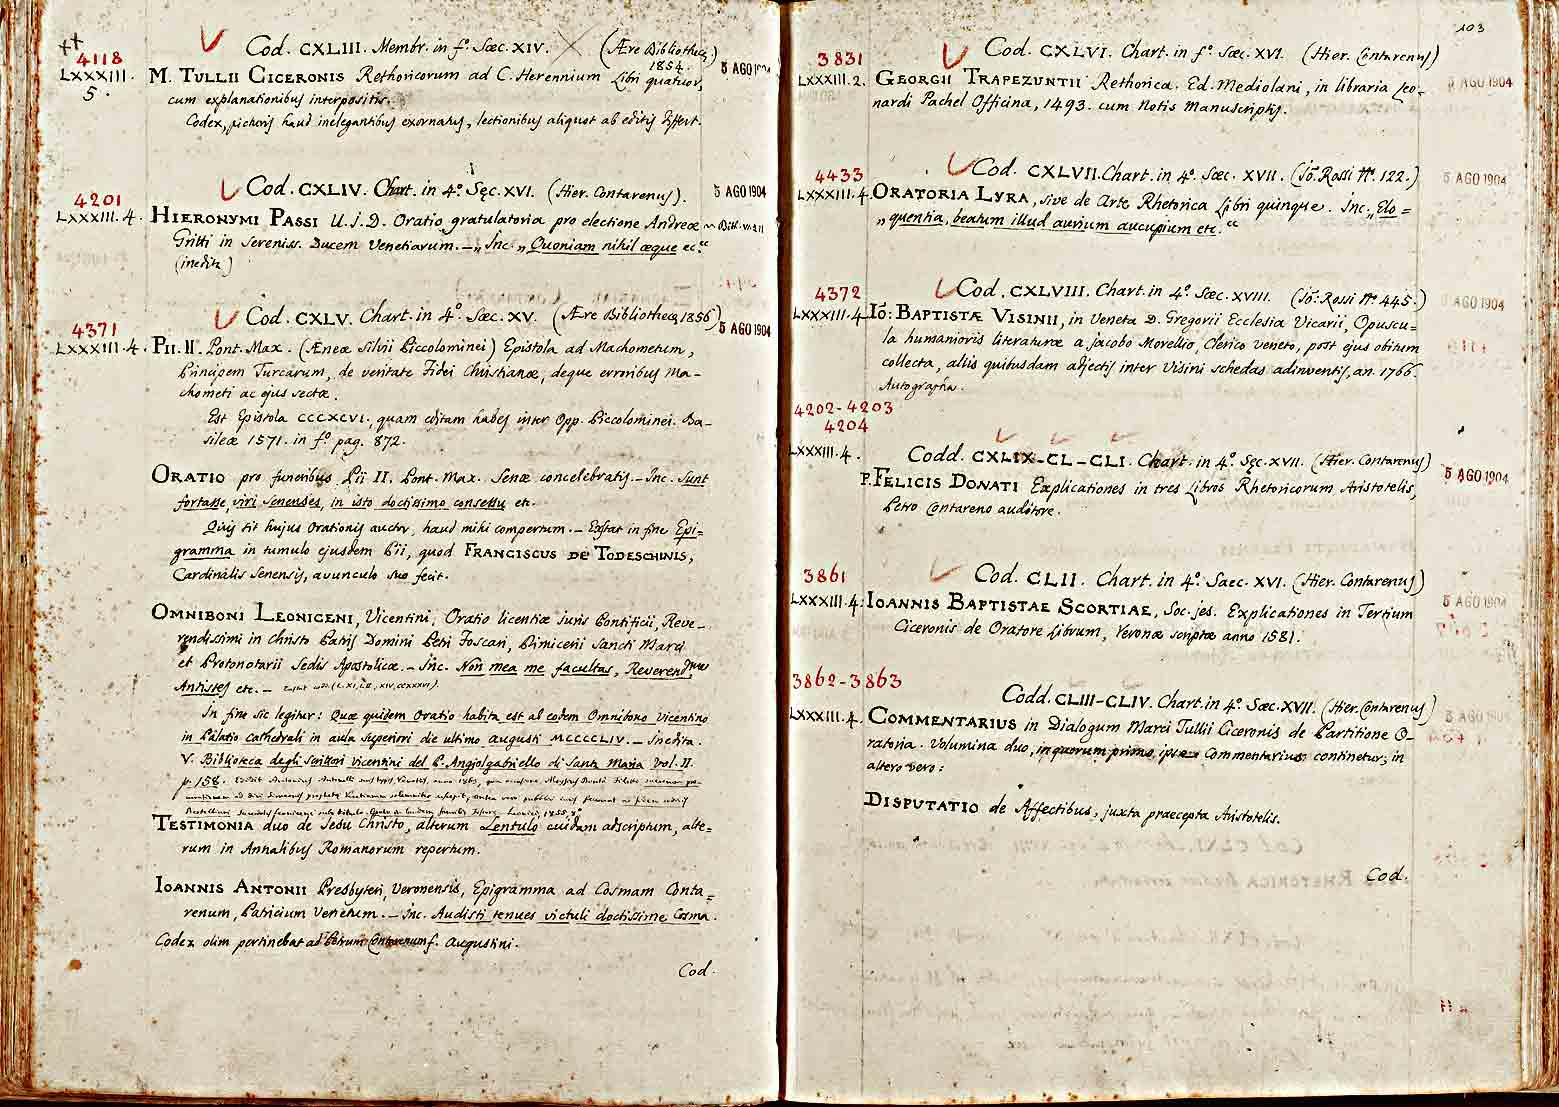 4118
LXXXIII.
5.
Cod. CXLIII. Membr. in fº. Sæc. XIV. (Ære Bibliothecæ,
1854.)
5 AGO 1904
M. TULLII CICERONIS Rethoricorum ad C. Herennium Libri quatuor,
cum explanationibus interpositis.
Codex, picturis haud inelegantibus exornatus, lectionibus aliquot ab editis differt.
4201
LXXXIII. 4.
Cod. CXLIV. Chart. in 4º. Sęc. XVI. (Hier. Contarenus).
5 AGO 1904
HIERONYMI PASSI U.J.D. Oratio gratulatoria pro electione Andreæ
Gritti in Sereniss. Ducem Venetiarum. — „Inc. „Quoniam nihil æque ec.“
(inedita)
4371
LXXXIII. 4.
Cod. CXLV. Chart. in 4º. Sæc. XV. (Ære Bibliothecæ 1856)
5 AGO 1904
PII. II. Pont. Max. (Æneæ Silvii Piccolominei) Epistola ad Machometum,
Principem Turcarum, de veritate Fidei Christianæ, deque erroribus Ma-
chometi ac ejus sectæ.
Est Epistola CCCXCVI., quam editam habes inter Opp. Piccolominei. Ba-
sileæ 1571. in fº. pag. 872.
ORATIO pro funeribus Pii II. Pont. Max. Senæ concelebratis. — Inc. Sunt
fortasse, viri Senenses, in isto doctissimo consessu etc.
Quis sit hujus Orationis auctor, haud mihi compertum. — Exstat in fine Epi-
gramma in tumulo ejusdem Pii, quod FRANCISCUS DE TODESCHINIS,
Cardinalis Senensis, avunculo suo fecit.
OMNIBONI LEONICENI, Vicentini, Oratio licentiæ juris Pontificii, Reve-
rendissimi in Christo Patris Domini Petri Foscari, Primicerii Sancti Marci
et Protonotarii Sedis Apostolicæ. — Inc. Non mea me facultas, Reverendme
Antistes etc. —
In fine sic legitur: Quæ quidem Oratio habita est ab eodem Omnibono Vicentino
in Palatio Cathedrali in aula superiori die ultimo Augusti MCCCCLIV. — Inedita.
V. Biblioteca degli Scrittori vicentini del P. Angiolgabriello di Santa Maria Vol. II.
p. 158.
TESTIMONIA duo de Jesu Christo, alterum Lentulo cuidam adscriptum, alte=
rum in Annalibus Romanorum repertum.
IOANNIS ANTONII Presbyteri, Veronensis, Epigramma ad Cosmam Conta=
renum, Patricium Venetum. — Inc. Audisti tenues victuli doctissime Cosma.
Codex olim pertinebat ad Petrum Contarenum f. Augustini.
Cod.
103
3831
LXXXIII. 2.
Cod. CXLVI. Chart. in fº. Sæc. XVI. (Hier. Contarenus)
5 AGO 1904
GEORGII TRAPEZUNTII Rethorica. Ed. Mediolani, in libraria Leo-
nardi Pachel Officina, 1493. cum Notis Manuscriptis.
4433
LXXXIII. 4.
Cod. CXLVII. Chart. in 4º. Sæc. XVII. (Jo. Rossi Nº. 122.)
5 AGO 1904
ORATORIA LYRA, sive de Arte Rhetorica Libri quinque. Inc. „Elo=
„quentia, beatum illud aurium aucupium etc.“
4372
LXXXIII. 4
Cod. CXLVIII. Chart. in 4º. Sæc. XVIII. (Jo. Rossi Nº 445.)
5 AGO 1904
IO: BAPTISTÆ VISINII, in Veneta D. Gregorii Ecclesia Vicarii, Opuscu-
la humanioris literaturæ a Jacobo Morellio, Clerico Veneto, post ejus obitum
collecta, aliis quibusdam adjectis inter Visini schedas adinventis, an. 1766.
Autographa.
4202-4203
4204
LXXXIII. 4.
Codd. CXLIX-CL-CLI. Chart. in 4º. Sęc. XVII. (Hier. Contarenus)
5 AGO 1904
P. FELICIS DONATI Explicationes in tres Libros Rhetoricorum Aristotelis,
Petro Contareno auditore.
3861
LXXXIII. 4.
Cod. CLII. Chart. in 4º. Saec. XVI. (Hier. Contarenus)
5 AGO 1904
IOANNIS BAPTISTAE SCORTIAE, Soc. Jes. Explicationes in Tertium
Ciceronis de Oratore Librum, Veronæ scriptæ anno 1581.
3862-3863
LXXXIII. 4.
Codd. CLIII-CLIV. Chart. in 4º. Sæc. XVII. (Hier. Contarenus)
5 AGO 1904
COMMENTARIUS in Dialogum Marci Tullii Ciceronis de Partitione O-
ratoria. Volumina duo, in quorum primo, ipse Commentarius continetur; in
altero vero:
DISPUTATIO de Affectibus, juxta praecepta Aristotelis.
Cod.